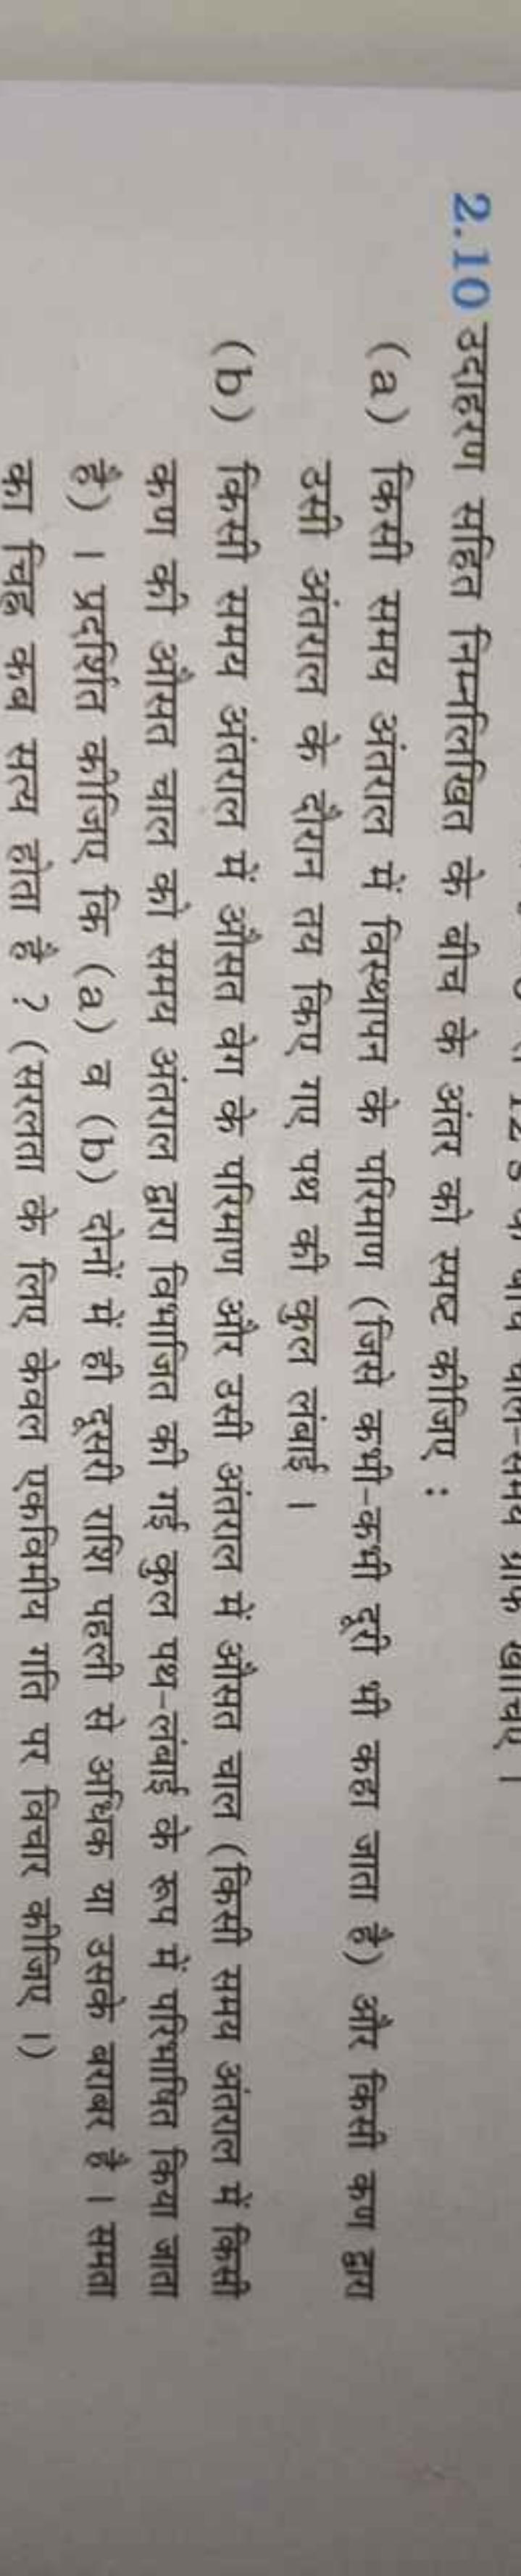 12 s के बीच चाल-समय ग्राफ खींचिए ।
2.10 उदाहरण सहित निम्नलिखित के बीच के अंतर को स्पष्ट कीजिए :
(a) किसी समय अंतराल में विस्थापन के परिमाण (जिसे कभी-कभी दूरी भी कहा जाता है) और किसी कण द्वारा
उसी अंतराल के दौरान तय किए गए पथ की कुल लंबाई ।
(b) किसी समय अंतराल में औसत वेग के परिमाण और उसी अंतराल में औसत चाल (किसी समय अंतराल में किसी
कण की औसत चाल को समय अंतराल द्वारा विभाजित की गई कुल पथ-लंबाई के रूप में परिभाषित किया जाता
है) । प्रदर्शित कीजिए कि (a) व (b) दोनों में ही दूसरी राशि पहली से अधिक या उसके बराबर है । समता
का चिह्न कब सत्य होता है ? (सरलता के लिए केवल एकविमीय गति पर विचार कीजिए ।)